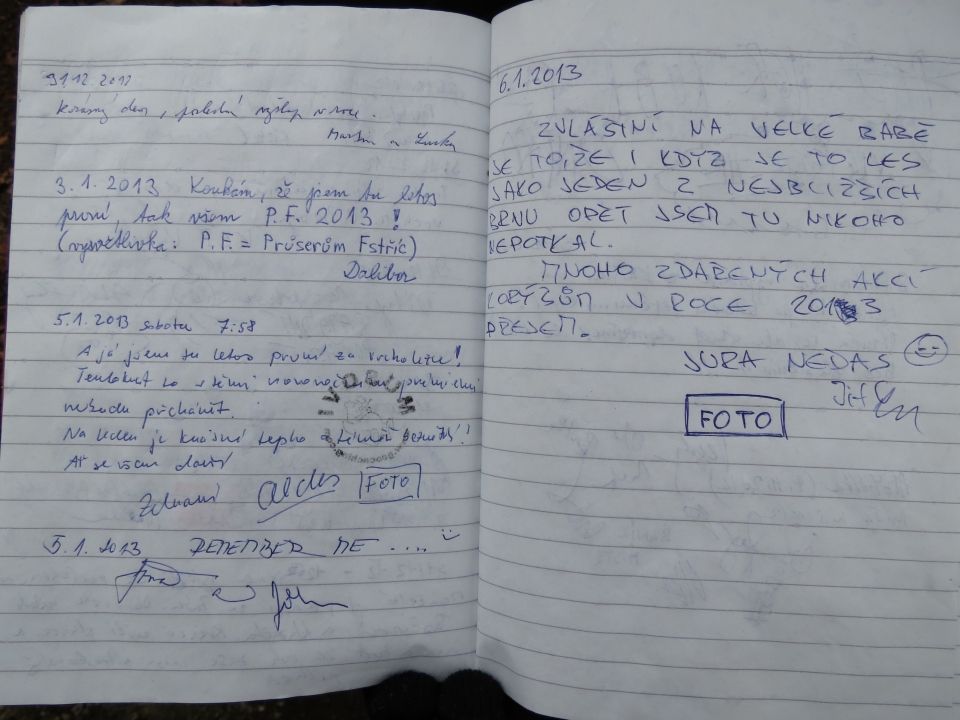 31.12.2012
Krásný den, poslední výšlap v roce.
Martin a Lucka
3.1.2013 Koukám, že jsem tu letos
první, tak všem P.F. 2013!
(vysvětlivka: P.F. = Průserům Fstříc)
Dalibor
5.1.2013 sobota 7:58
A já jsem tu letos první za
Tentokrát to s těmi
nebudu přehánět.
Na leden je krásně teplo a téměř
Ať se všem daří
Zdraví
FOTO
5.1.2013 REMEMBER ME ....
a John
6.1.2013
ZVLÁŠTNÍ NA VELKÉ BABĚ
JE TO, ŽE I KDYŽ JE TO LES
JAKO JEDEN Z NEJBLIŽŠÍCH
BRNU OPĚT JSEM TU NIKOHO
NEPOTKAL.
MNOHO ZDAŘENÝCH AKCÍ
V ROCE 2013
PŘEJEM.
JURA NEDAS
FOTO